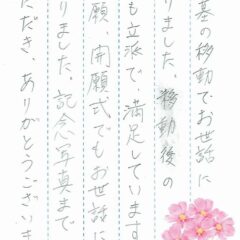 基の移動でお世話に
りました。移動後の
も立派で、満足しています
願、開願式でもお世話に
りました。記念写真まで
ただき、ありがとうございま